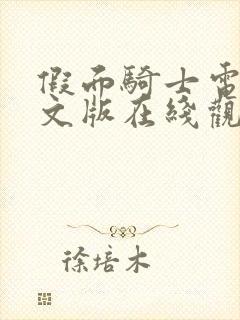 假面騎士電
文版在綫觀
徐培木